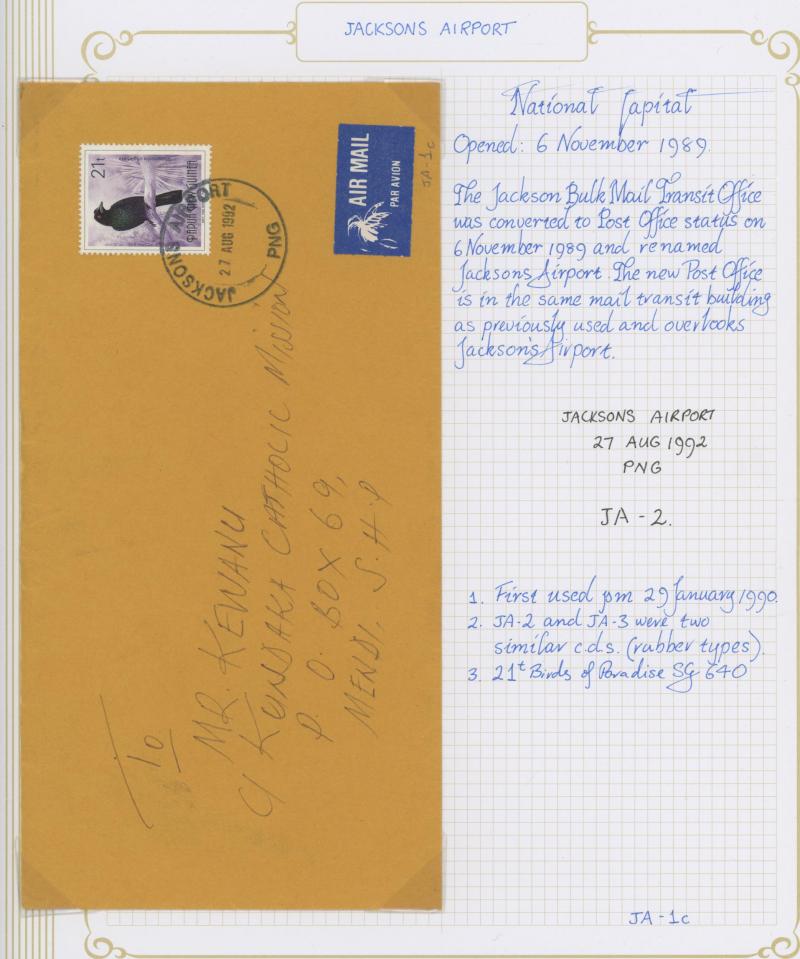 JACKSONS AIRPORT
21t
JACKSONS AIRPORT
27 AUG 1992
PNG
AIR MAIL
PAR AVION
JA-1c
To
MR. KEWANU
C/ KUNDAKA CATHOLIC MISSION
P. O. BOX 69,
MENDI, S.H.P
National Capital
Opened: 6 November 1989.
The Jackson Bulk Mail Transit Office
was converted to Post Office status on
6 November 1989 and renamed
Jacksons Airport. The new Post Office
is in the same mail transit building
as previously used and overlooks
Jackson's Airport.
JACKSONS AIRPORT
27 AUG 1992
PNG
JA-2.
1. First used pm 29 January 1990.
2. JA-2 and JA-3 were two
similar c.d.s. (rubber types).
3. 21t Birds of Paradise SG 640
JA-1c